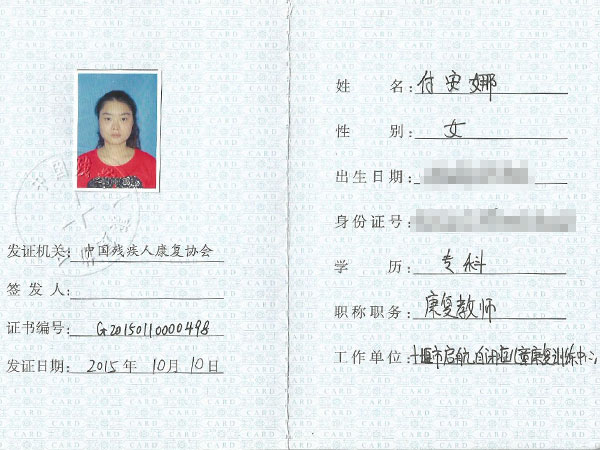 发证机关: 中国残疾人康复协会
签发人:
证书编号: G20150110000498
发证日期: 2015年 10月 10日
姓 名: 付安娜
性 别: 女
出生日期:
身份证号:
学 历: 专科
职称职务: 康复教师
工作单位: 十堰市启航自闭症儿童康复训练中心